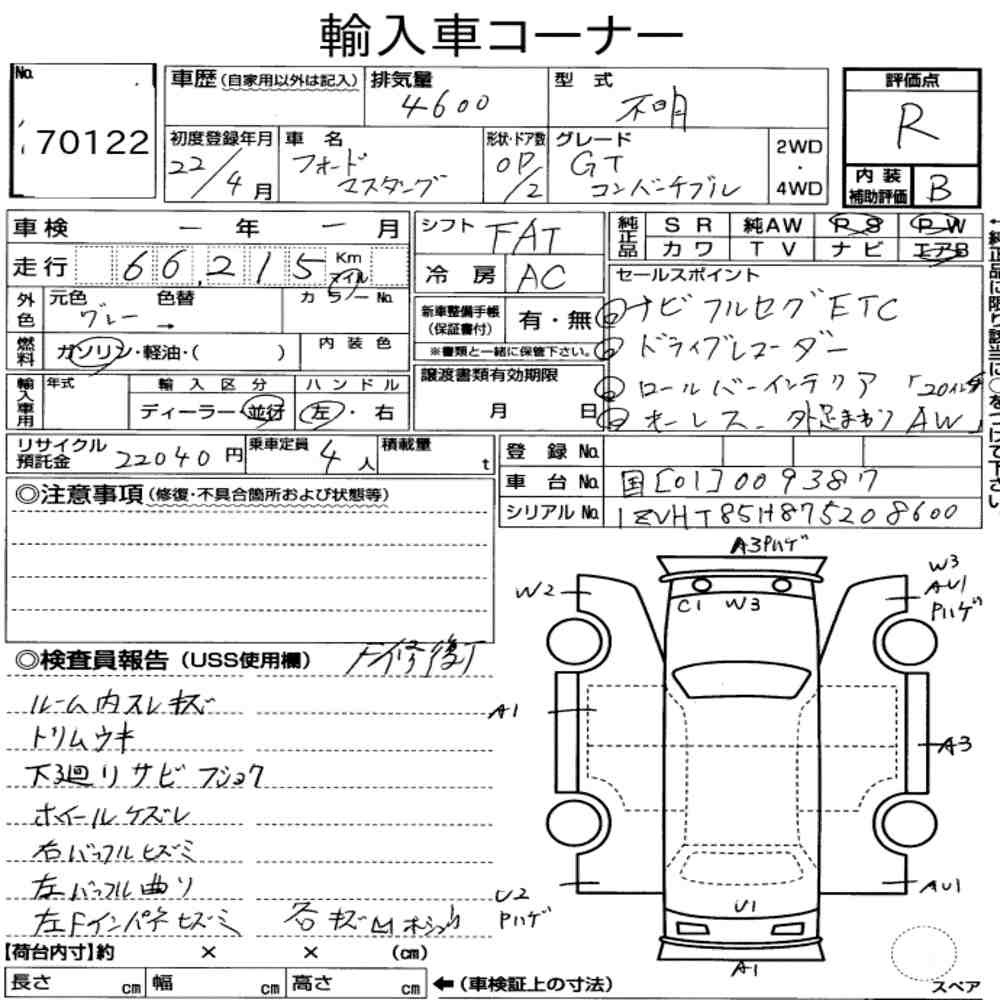 輸入車コーナー
No. 70122
車歴(自家用以外は記入) 排気量 4600 型式 不明
評価点 R
初度登録年月 22/4月 車名 フォード マスタング 形状・ドア数 OP/2 グレード GT コンバーチブル 2WD・4WD
内装補助評価 B
車検 ー年 ー月 シフト FAT 純正品 SR 純AW PS PW
カワ TV ナビ エアB
走行 66,215 Km マイル 冷房 AC
セールスポイント
外色 元色 グレー → 色替 カラーNo. 新車整備手帳(保証書付) 有・無
ナビ フルセグ ETC
燃料 ガソリン・軽油・( ) 内装色 ※書類と一緒に保管下さい。
ドライブレコーダー
輸入車用 年式 輸入区分 ハンドル 譲渡書類有効期限
ロールバーインテリア 「20インチ
ディーラー・並行 左・右 月 日
ホーレス 外足まわり AW」
←純正品に限り該当に○をつけて下さい。
リサイクル預託金 22040円 乗車定員 4人 積載量 t 登録No.
車台No. 国[01]009387
◎注意事項(修復・不具合箇所および状態等)
シリアルNo. 1ZVHT85H875208600
A3Pハゲ
W2 C1 W3 W3 AU1 Pハゲ
◎検査員報告(USS使用欄) 下イ修復
ルーム内スレキズ
A1
トリムウキ
A3
下廻りサビフショク
ホイールケズレ
右バッフルヒズミ
左バッフル曲り
U2 Pハゲ U1 AU1
左Fインパネヒズミ 各キズ凹ホシュウ
A1
【荷台内寸】約 × × (cm)
長さ cm 幅 cm 高さ cm ←(車検証上の寸法)
スペア